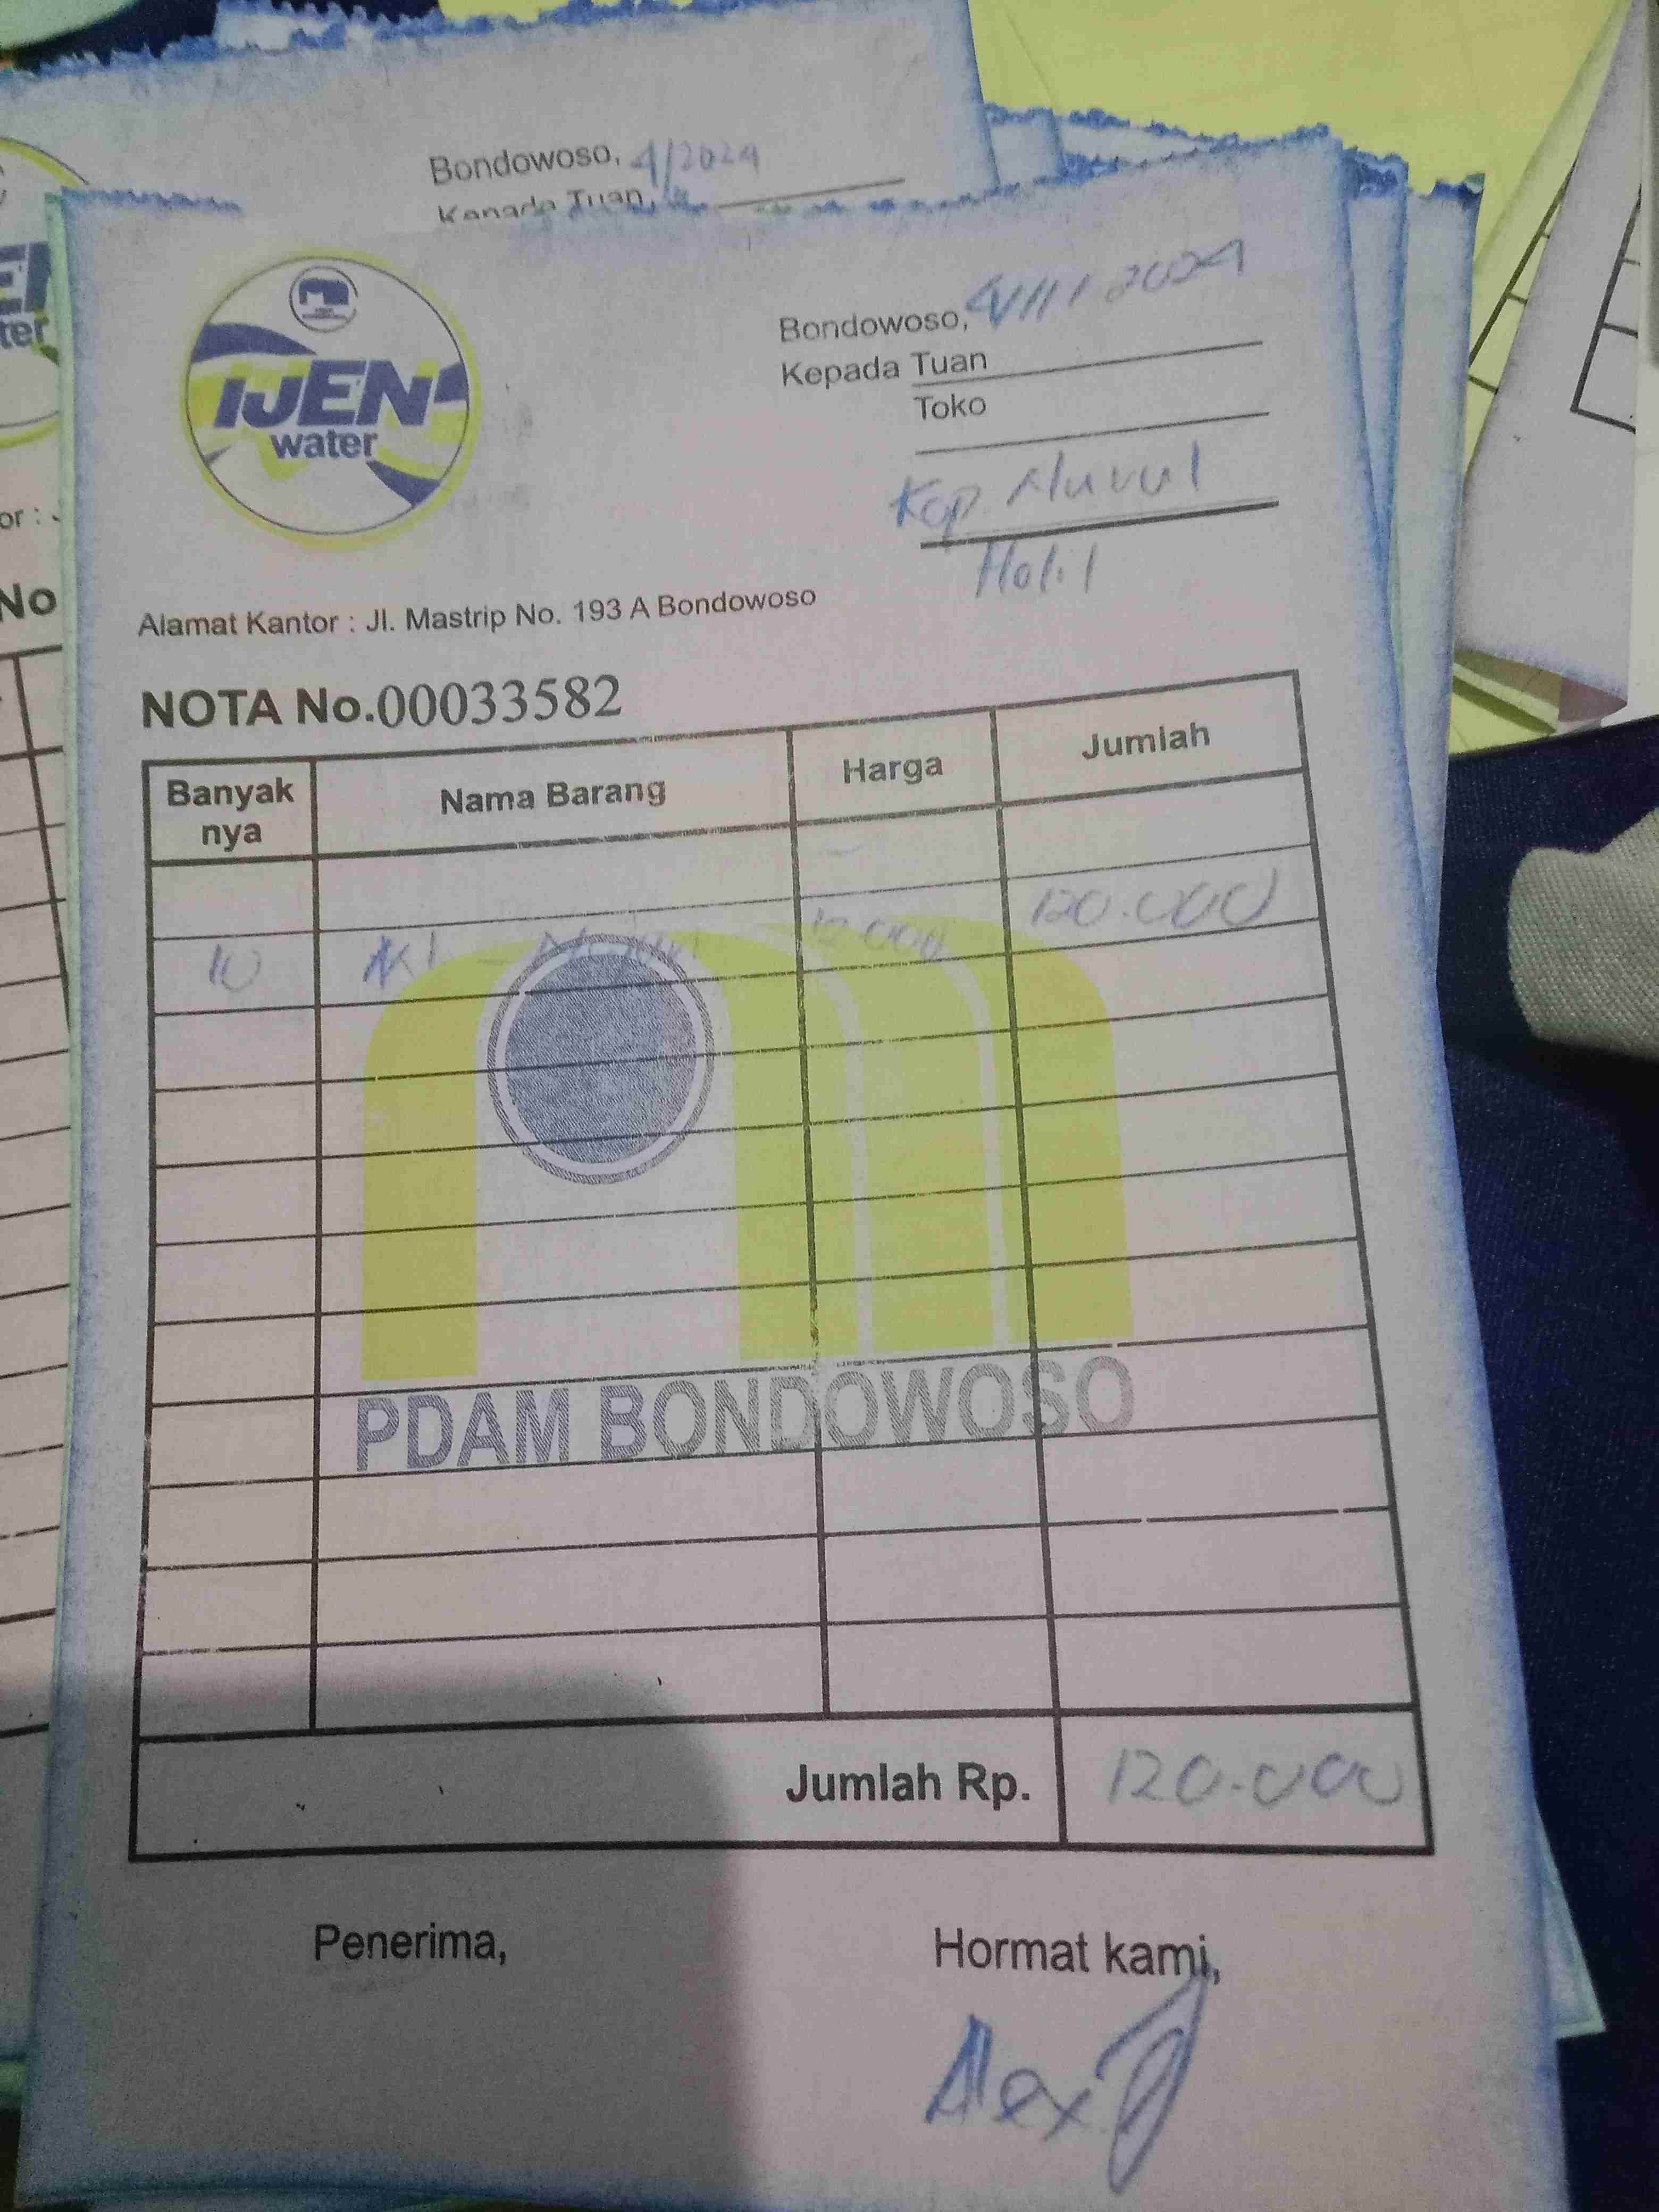 Bondowoso, 4/2024
Kepada Tuan
IJEN
water
Bondowoso, 4/11/2024
Kepada Tuan
Toko
Kop. Nurul
Holil
Alamat Kantor : Jl. Mastrip No. 193 A Bondowoso
NOTA No.00033582
Banyak nya Nama Barang Harga Jumlah
10 12.000 120.000
PDAM BONDOWOSO
Jumlah Rp. 120.000
Penerima, Hormat kami,
Alex
ter
or :
No